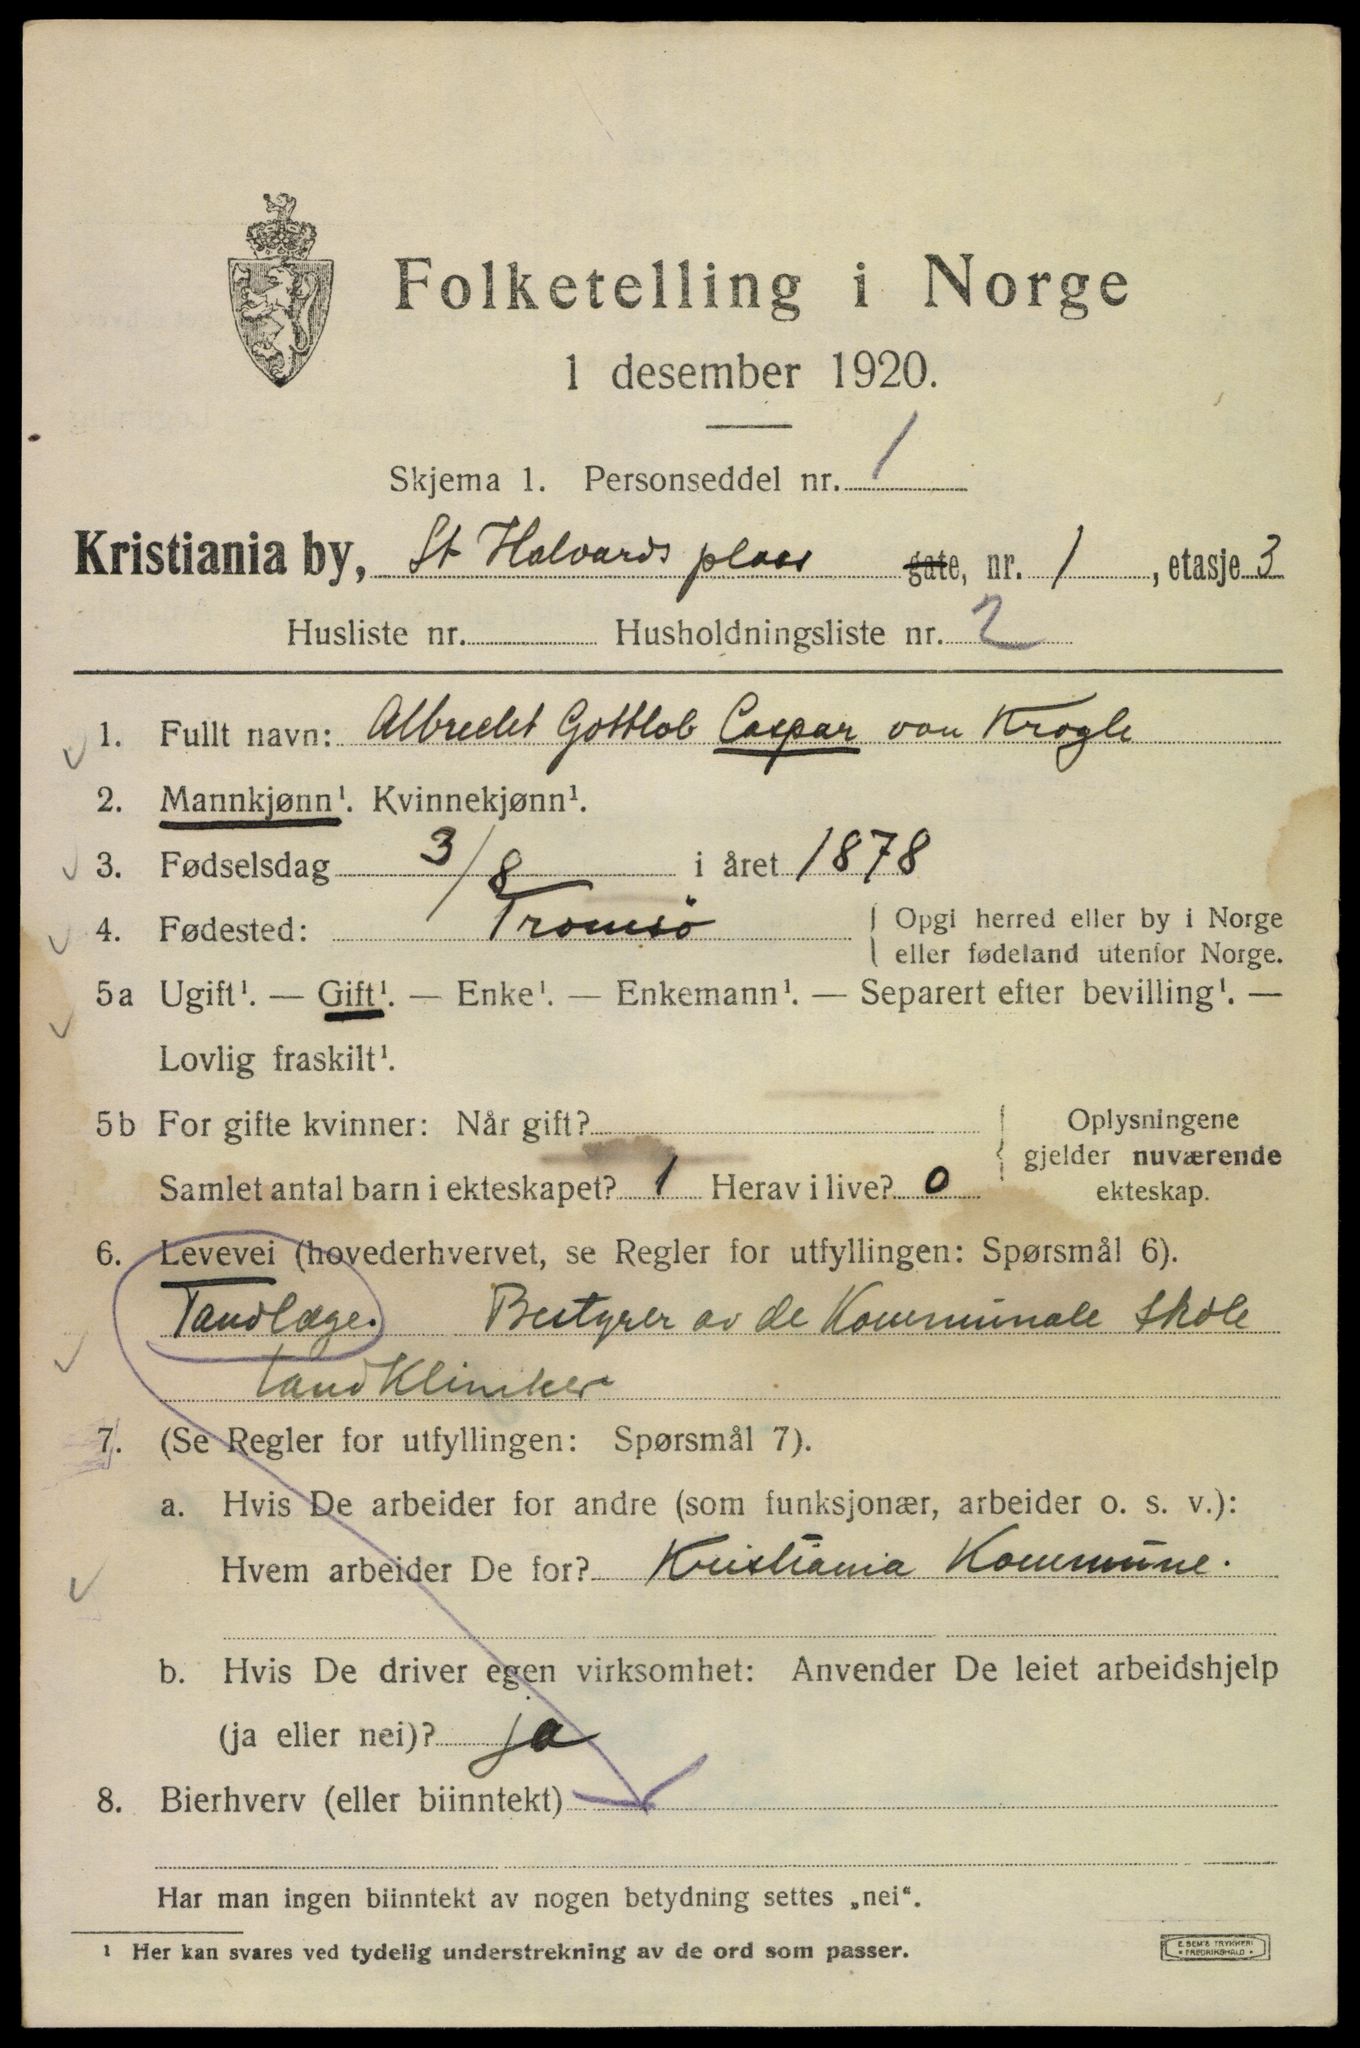 Folketelling i Norge
1 desember 1920.
Skjema 1. Personseddel nr. 1
Kristiania by, St Halvards plass gate, nr. 1, etasje 3
Husliste nr. Husholdningsliste nr. 2
1. Fullt navn: Albrecht Gottlob Caspar von Krogh
2. Mannkjønn¹. Kvinnekjønn¹.
3. Fødselsdag 3/8 i året 1878
4. Fødested: Tromsö { Opgi herred eller by i Norge
eller fødeland utenfor Norge.
5a Ugift¹. — Gift¹. — Enke¹. — Enkemann¹. — Separert efter bevilling¹. —
Lovlig fraskilt¹.
5b For gifte kvinner: Når gift? { Oplysningene
gjelder nuværende
Samlet antal barn i ekteskapet? 1 Herav i live? 0 ekteskap.
6. Levevei (hovederhvervet, se Regler for utfyllingen: Spørsmål 6).
Tandlæge. Bestyrer av de Kommunale skole
tandkliniker
7. (Se Regler for utfyllingen: Spørsmål 7).
a. Hvis De arbeider for andre (som funksjonær, arbeider o. s. v.):
Hvem arbeider De for? Kristiania Kommune.
b. Hvis De driver egen virksomhet: Anvender De leiet arbeidshjelp
(ja eller nei)? ja
8. Bierhverv (eller biinntekt)
Har man ingen biinntekt av nogen betydning settes „nei“.
¹ Her kan svares ved tydelig understrekning av de ord som passer.
E. SEM'S TRYKKERI
• FREDRIKSHALD •